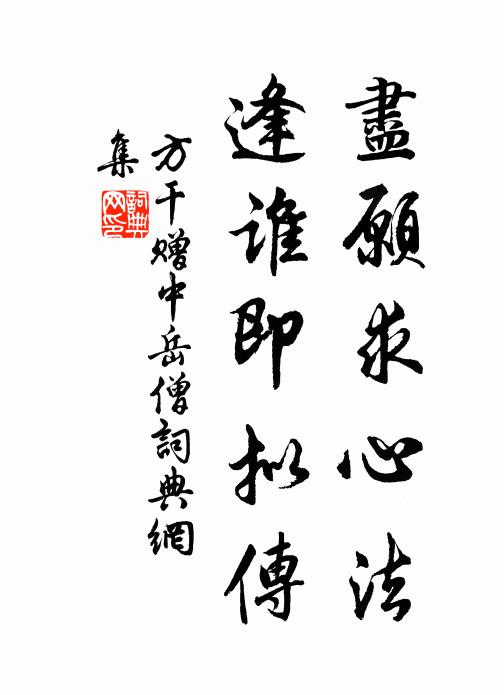 盡願求心法
逢誰即拟傳
方干贈中岳僧詞典網
集
詞典网印